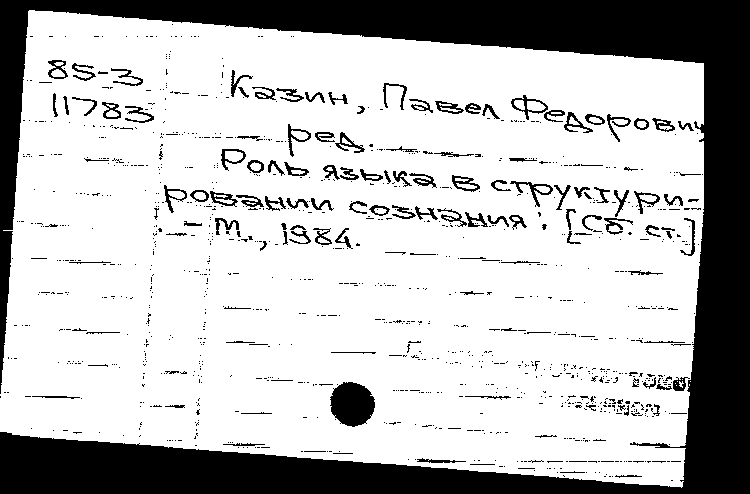 85-3
11783
Казин, Павел Федорович,
ред.
Роль языка в структури-
ровании сознания : [Сб. ст.]
. – М., 1984.